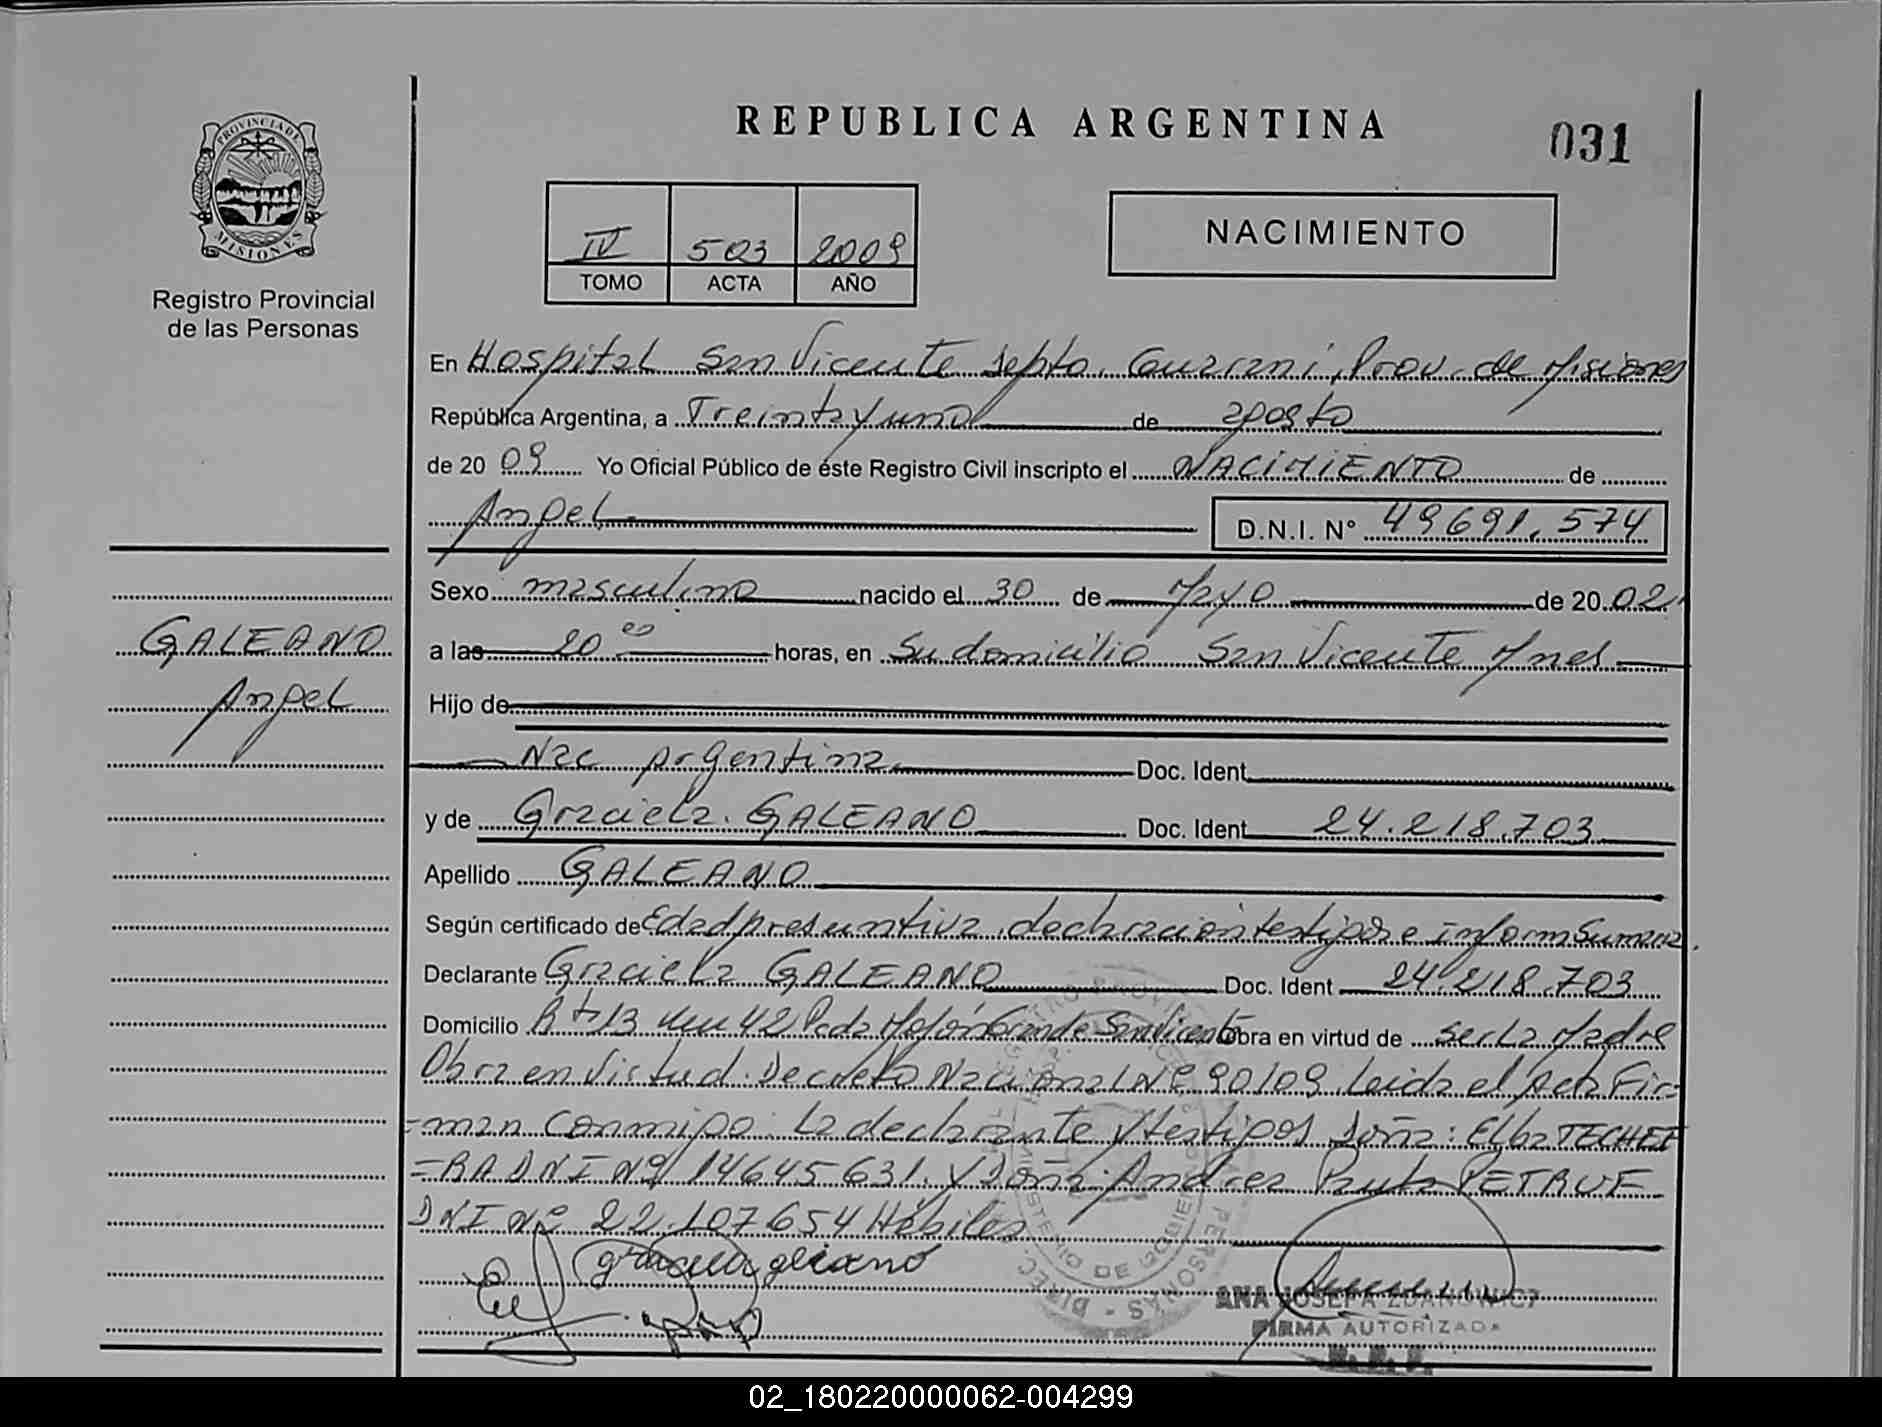 REPUBLICA ARGENTINA
031
PROVINCIA DE MISIONES
Registro Provincial
de las Personas
IV 503 2009
TOMO ACTA AÑO
NACIMIENTO
En Hospital San Vicente Depto. Guarani, Prov. de Misiones
República Argentina, a Treinta y uno de agosto
de 20 09 Yo Oficial Público de éste Registro Civil inscripto el NACIMIENTO de
Angel D.N.I. N° 49691.574
Sexo masculino nacido el 30 de Mayo de 20 02
GALEANO
Angel
a las 20 00 horas, en Su domicilio San Vicente Mnes
Hijo de
Nac Argentina Doc. Ident
y de Graciela GALEANO Doc. Ident 24.218.703
Apellido GALEANO
Según certificado de Edad presuntiva, declaracion testigos e Inform Sumaria
Declarante Graciela GALEANO Doc. Ident 24.218.703
Domicilio R 13 km 42 Pada Grande San Vicente obra en virtud de ser La Madre
Obra en virtud Decreto Nacional Nº 90/09 Leida el Acta Fir=
=man conmigo La declarante y testigos Doña: Elba TECHEI
=RA DNI Nº 14645631. y Doña Andrea PETRUF
DNI Nº 22.107654 Hábiles
graciela galeano
ANA JOSEFA ZDANOWICZ
FIRMA AUTORIZADA
02_180220000062-004299